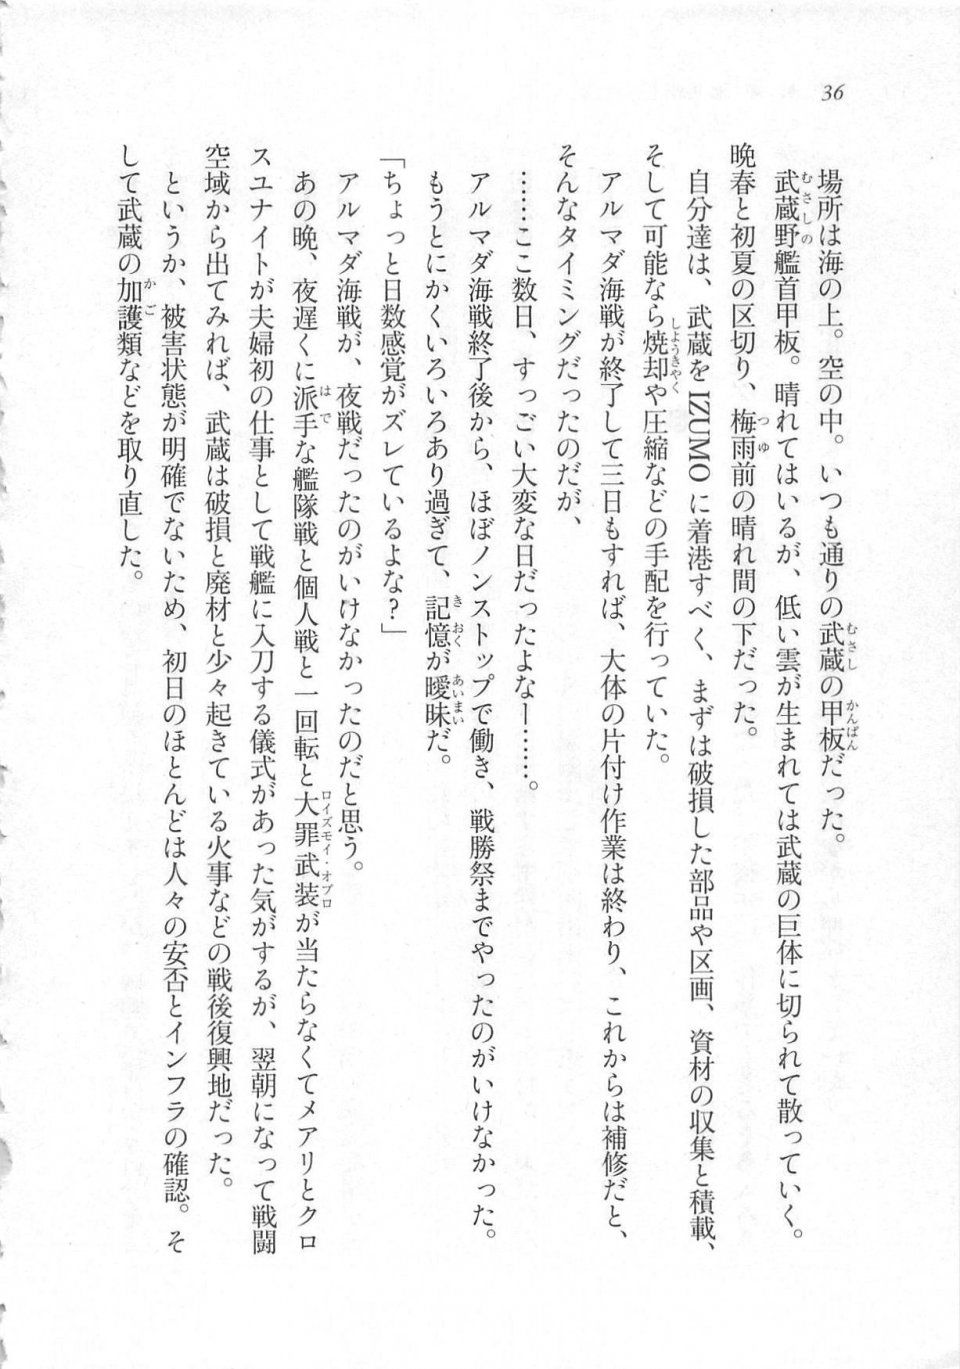 36
場所は海の上。空の中。いつも通りの武蔵の甲板だった。
武蔵野艦首甲板。晴れてはいるが、低い雲が生まれては武蔵の巨体に切られて散っていく。
晩春と初夏の区切り、梅雨前の晴れ間の下だった。
自分達は、武蔵をIZUMOに着港すべく、まずは破損した部品や区画、資材の収集と積載、
そして可能なら焼却や圧縮などの手配を行っていた。
アルマダ海戦が終了して三日もすれば、大体の片付け作業は終わり、これからは補修だと、
そんなタイミングだったのだが、
……ここ数日、すっごい大変な日だったよなー……。
アルマダ海戦終了後から、ほぼノンストップで働き、戦勝祭までやったのがいけなかった。
もうとにかくいろいろあり過ぎて、記憶が曖昧だ。
「ちょっと日数感覚がズレているよな?」
アルマダ海戦が、夜戦だったのがいけなかったのだと思う。
あの晩、夜遅くに派手な艦隊戦と個人戦と一回転と大罪武装が当たらなくてメアリとクロ
スユナイトが夫婦初の仕事として戦艦に入刀する儀式があった気がするが、翌朝になって戦闘
空域から出てみれば、武蔵は破損と廃材と少々起きている火事などの戦後復興地だった。
というか、被害状態が明確でないため、初日のほとんどは人々の安否とインフラの確認。そ
して武蔵の加護類などを取り直した。